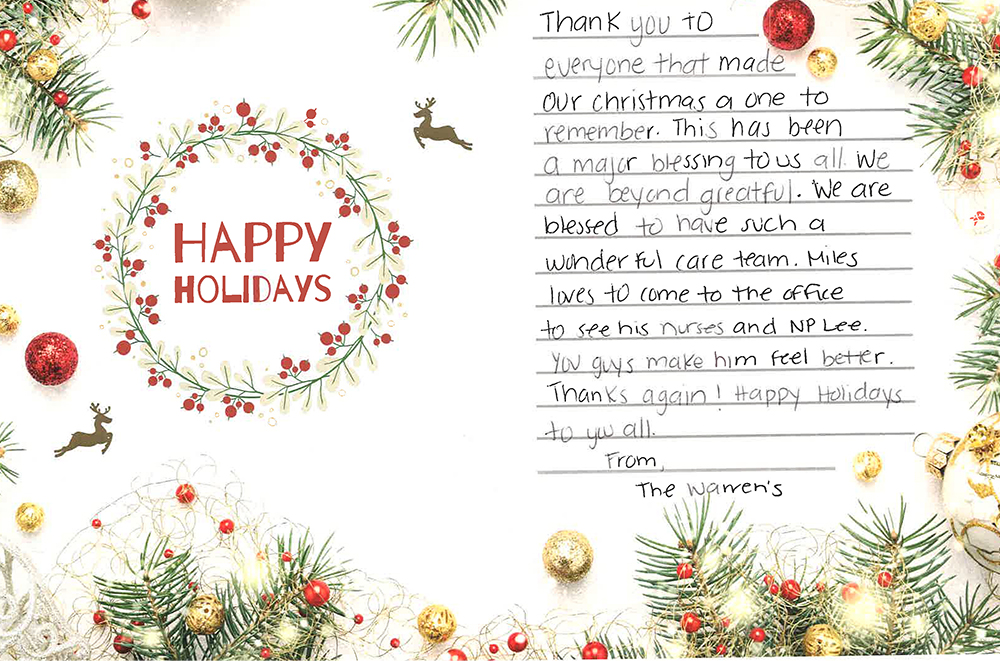 HAPPY
HOLIDAYS
Thank you to
everyone that made
our christmas a one to
remember. This has been
a major blessing to us all. We
are beyond greatful. We are
blessed to have such a
wonderful care team. Miles
loves to come to the office
to see his nurses and NP Lee.
You guys make him feel better.
Thanks again! Happy Holidays
to you all.
From,
The Warren's